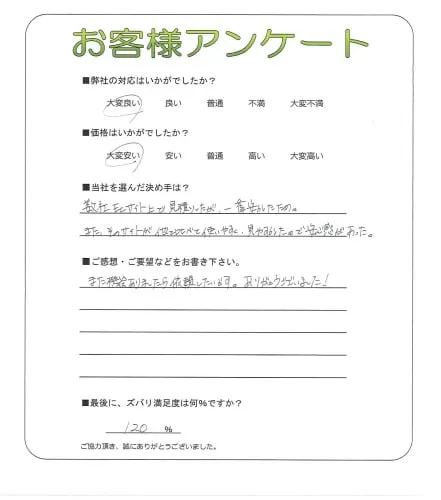 お客様アンケート
■弊社の対応はいかがでしたか？
大変良い 良い 普通 不満 大変不満
■価格はいかがでしたか？
大変安い 安い 普通 高い 大変高い
■当社を選んだ決め手は？
数社ECサイト上で見積りしたが、一番安かしたため。
また、そのサイトが 使いやすく、見やすかったので安心感があった。
■ご感想・ご要望などをお書き下さい。
また機会ありましたら依頼したいます。ありがとうございました！
■最後に、ズバリ満足度は何％ですか？
120 ％
ご協力頂き、誠にありがとうございました。